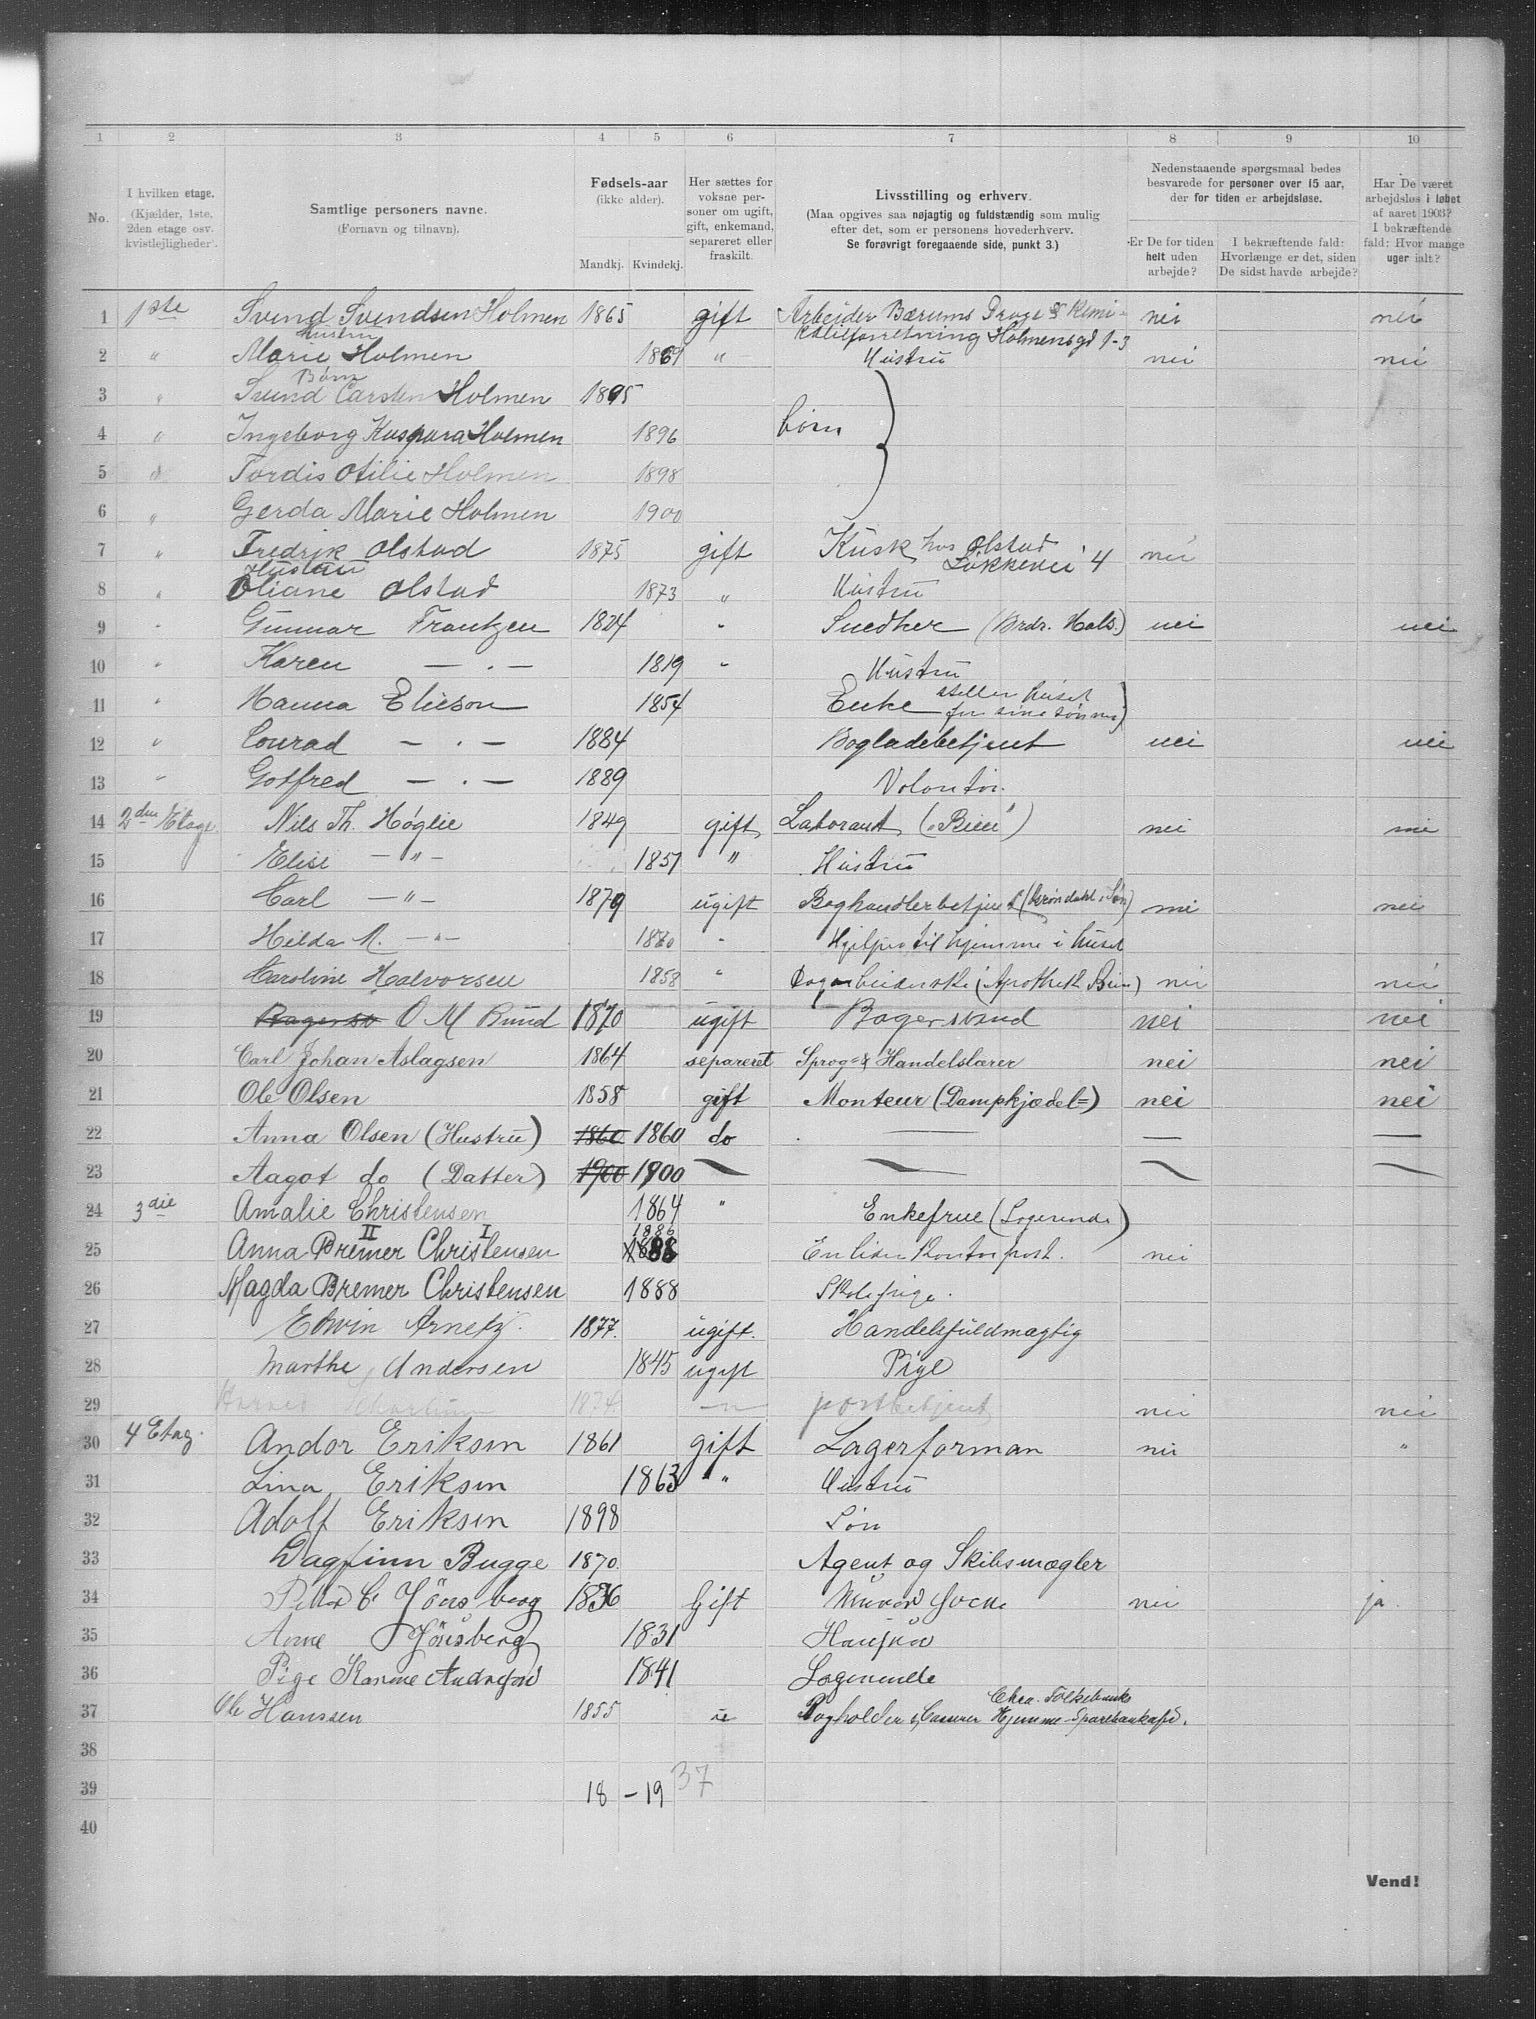 1 2 3 4 5 6 7 8 9 10
No.
I hvilken etage.
(Kjælder, 1ste,
2den etage osv.
kvistlejligheder).
Samtlige personers navne.
(Fornavn og tilnavn).
Fødsels-aar
(ikke alder).
Mandkj. Kvindekj.
Her sættes for
voksne per-
soner om ugift,
gift, enkemand,
separeret eller
fraskilt.
Livsstilling og erhverv.
(Maa opgives saa nøjagtig og fuldstændig som mulig
efter det, som er personens hovederhverv.
Se forøvrigt foregaaende side, punkt 3.)
Nedenstaaende spørgsmaal bedes
besvarede for personer over 15 aar,
der for tiden er arbejdsløse.
Er De for tiden
helt uden
arbejde?
I bekræftende fald:
Hvorlænge er det, siden
De sidst havde arbejde?
Har De været
arbejdsløs i løbet
af aaret 1903?
I bekræftende
fald: Hvor mange
uger ialt?
1 1ste Svend Svendsen Holmen 1865 gift Arbejder Bærums Droge & Kemi- nei nei
Hustru kalieforretning Holmensgd 1-3
2 " Marie Holmen 1869 " Hustru nei nei
Børn
3 " Svend Carsten Holmen 1895
4 " Ingeborg Kaspara Holmen 1896 børn
5 " Tordis Otilie Holmen 1898
6 " Gerda Marie Holmen 1900
7 " Fredrik Olstad 1875 gift Kusk hos Olstad nei
Hustru Løkkevei 4
8 " Oliane Olstad 1873 " Hustru
9 " Gunnar Frantzen 1824 " Snedker (Brdr. Hals.) nei nei
10 " Karen — . — 1819 " Hustru
11 " Hanna Elieson 1854 Enke steller huset
for sine sønner)
12 " Conrad — . — 1884 Bogladebetjent nei nei
13 " Gotfred — . — 1889 Volontør.
14 2den Etage. Nils Th. Høglie 1849 gift Laborant ("Bien") nei nei
15 Elise — " — 1857 " Hustru
16 Carl — " — 1879 ugift Boghandlerbetjent (Grøndahl & Søn) nei nei
17 Hilda M. — " — 1870 " Hjelper til hjemme i huset
18 Karoline Halvorsen 1858 " Dagarbeiderske (Apothek Bien) nei nei
19 O M Bund 1870 ugift Bagersvend nei nei
20 Carl Johan Aslagsen 1864 separeret Sprog- & Handelslærer nei nei
21 Ole Olsen 1858 gift Monteur (Dampkjædel=) nei nei
22 Anna Olsen (Hustru) 1860 1860 do — — —
23 Aagot do (Datter) 1900 1900 — — — —
24 3die Amalie Christensen 1864 " Enkefrue (Logerende)
II I 1886
25 Anna Bremer Christensen 1888 En liden Kontorpost. nei
26 Magda Bremer Christensen 1888 Skolepige.
27 Edwin Arnetz. 1877. ugift. Handelsfuldmægtig
28 Marthe Andersen 1845 ugift Pige
29 1874 — " — postbetjent nei nei
30 4 Etag. Andor Eriksen 1861 gift Lagerforman nei "
31 Lina Eriksen 1863 " Hustru
32 Adolf Eriksen 1898 Søn
33 Dagfinn Bugge 1870. Agent og Skibsmægler
34 Peter C. Jönsberg 1836 Gift nei ja.
35 Anne Jönsberg 1831
36 Pige Karine 1841 Logerende
37 Ole Hanssen 1855 u Bogholder & Casserer Chra. Folkebank &
Hjemme-Sparebankafd.
38
39 18 – 19 37
40
Vend!